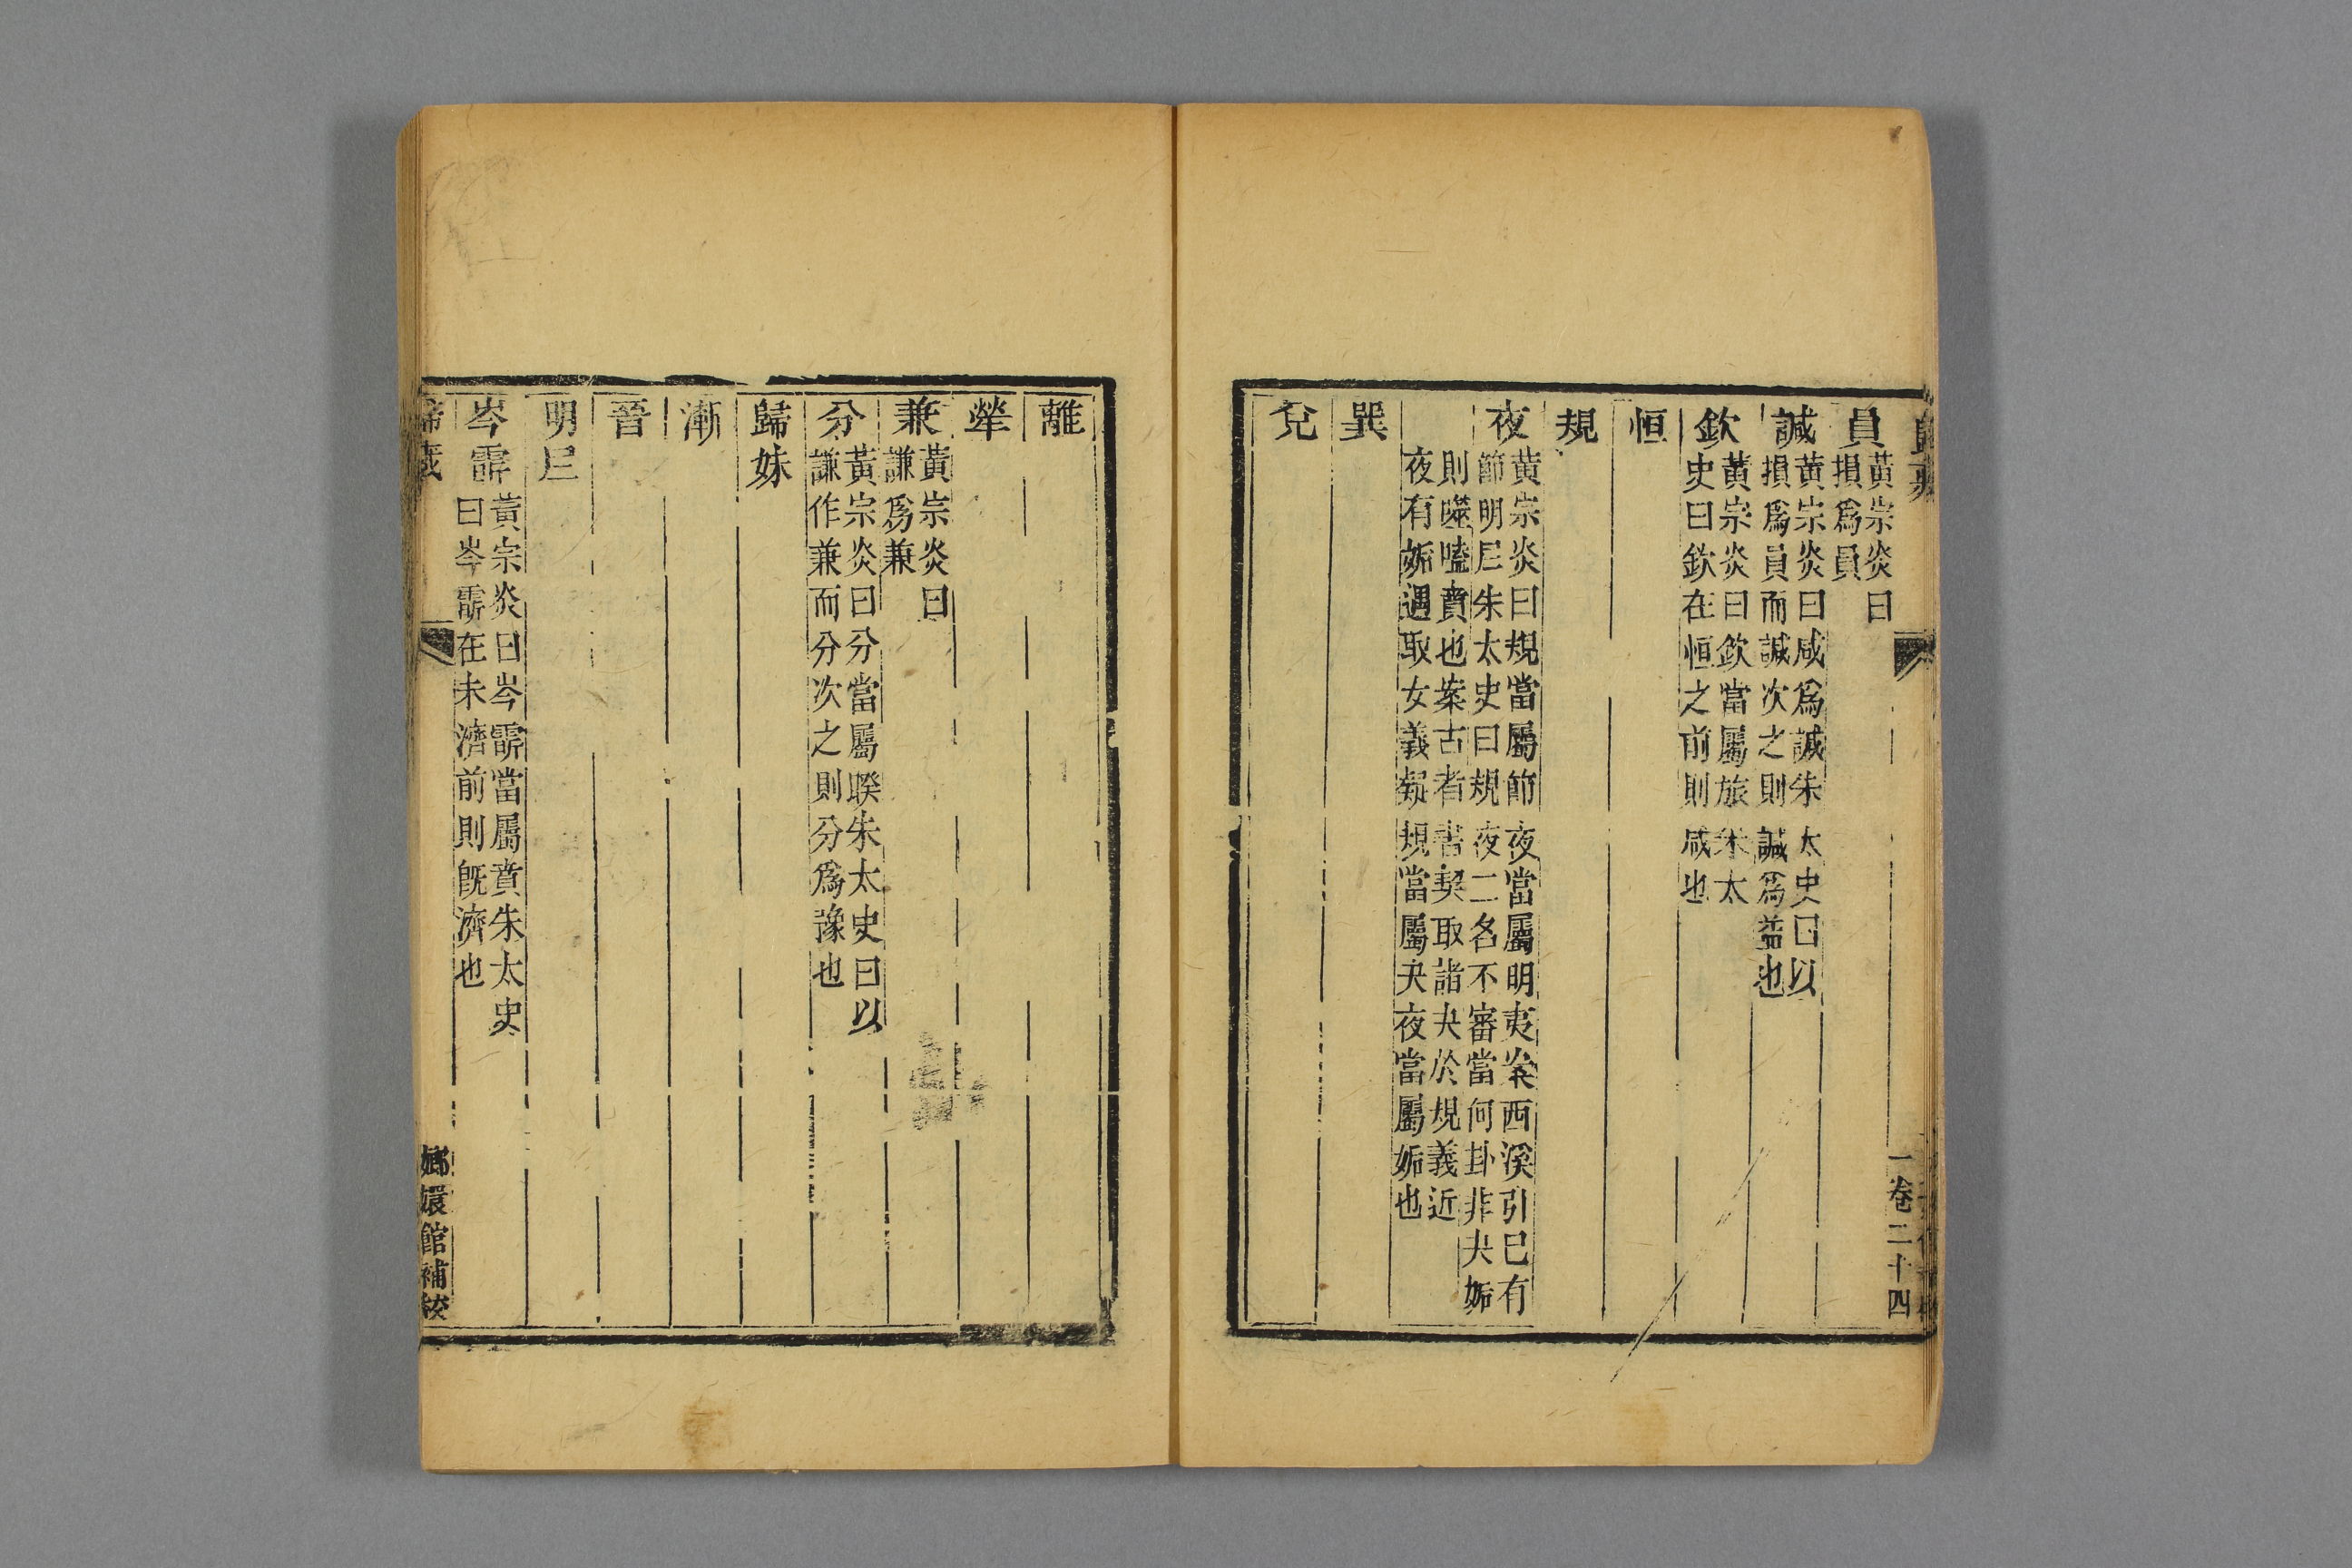 員黃宗炎曰
損爲員
諴黃宗炎曰咸爲諴朱太史曰以
損爲員而諴次之則諴爲益也
欽黃宗炎曰欽當屬旅朱太
史曰欽在恒之前則咸也
恒
規
夜黃宗炎曰規當屬節夜當屬明夷案西溪引已有
節明𡰥朱太史曰規夜二名不審當何卦非夬姤
則噬嗑賁也案古者書契取諸夬於規義近
夜有姤遇取女義疑規當屬夬夜當屬姤也
巽
兌
卷二十四
離
犖
兼黃宗炎曰
謙爲兼
分黃宗炎曰分當屬睽朱太史曰以
謙作兼而分次之則分爲豫也
歸妹
漸
晉
明𡰥
岑䨏黃宗炎曰岑䨏當屬賁朱太史
曰岑䨏在未濟前則旣濟也
嫏嬛館補校